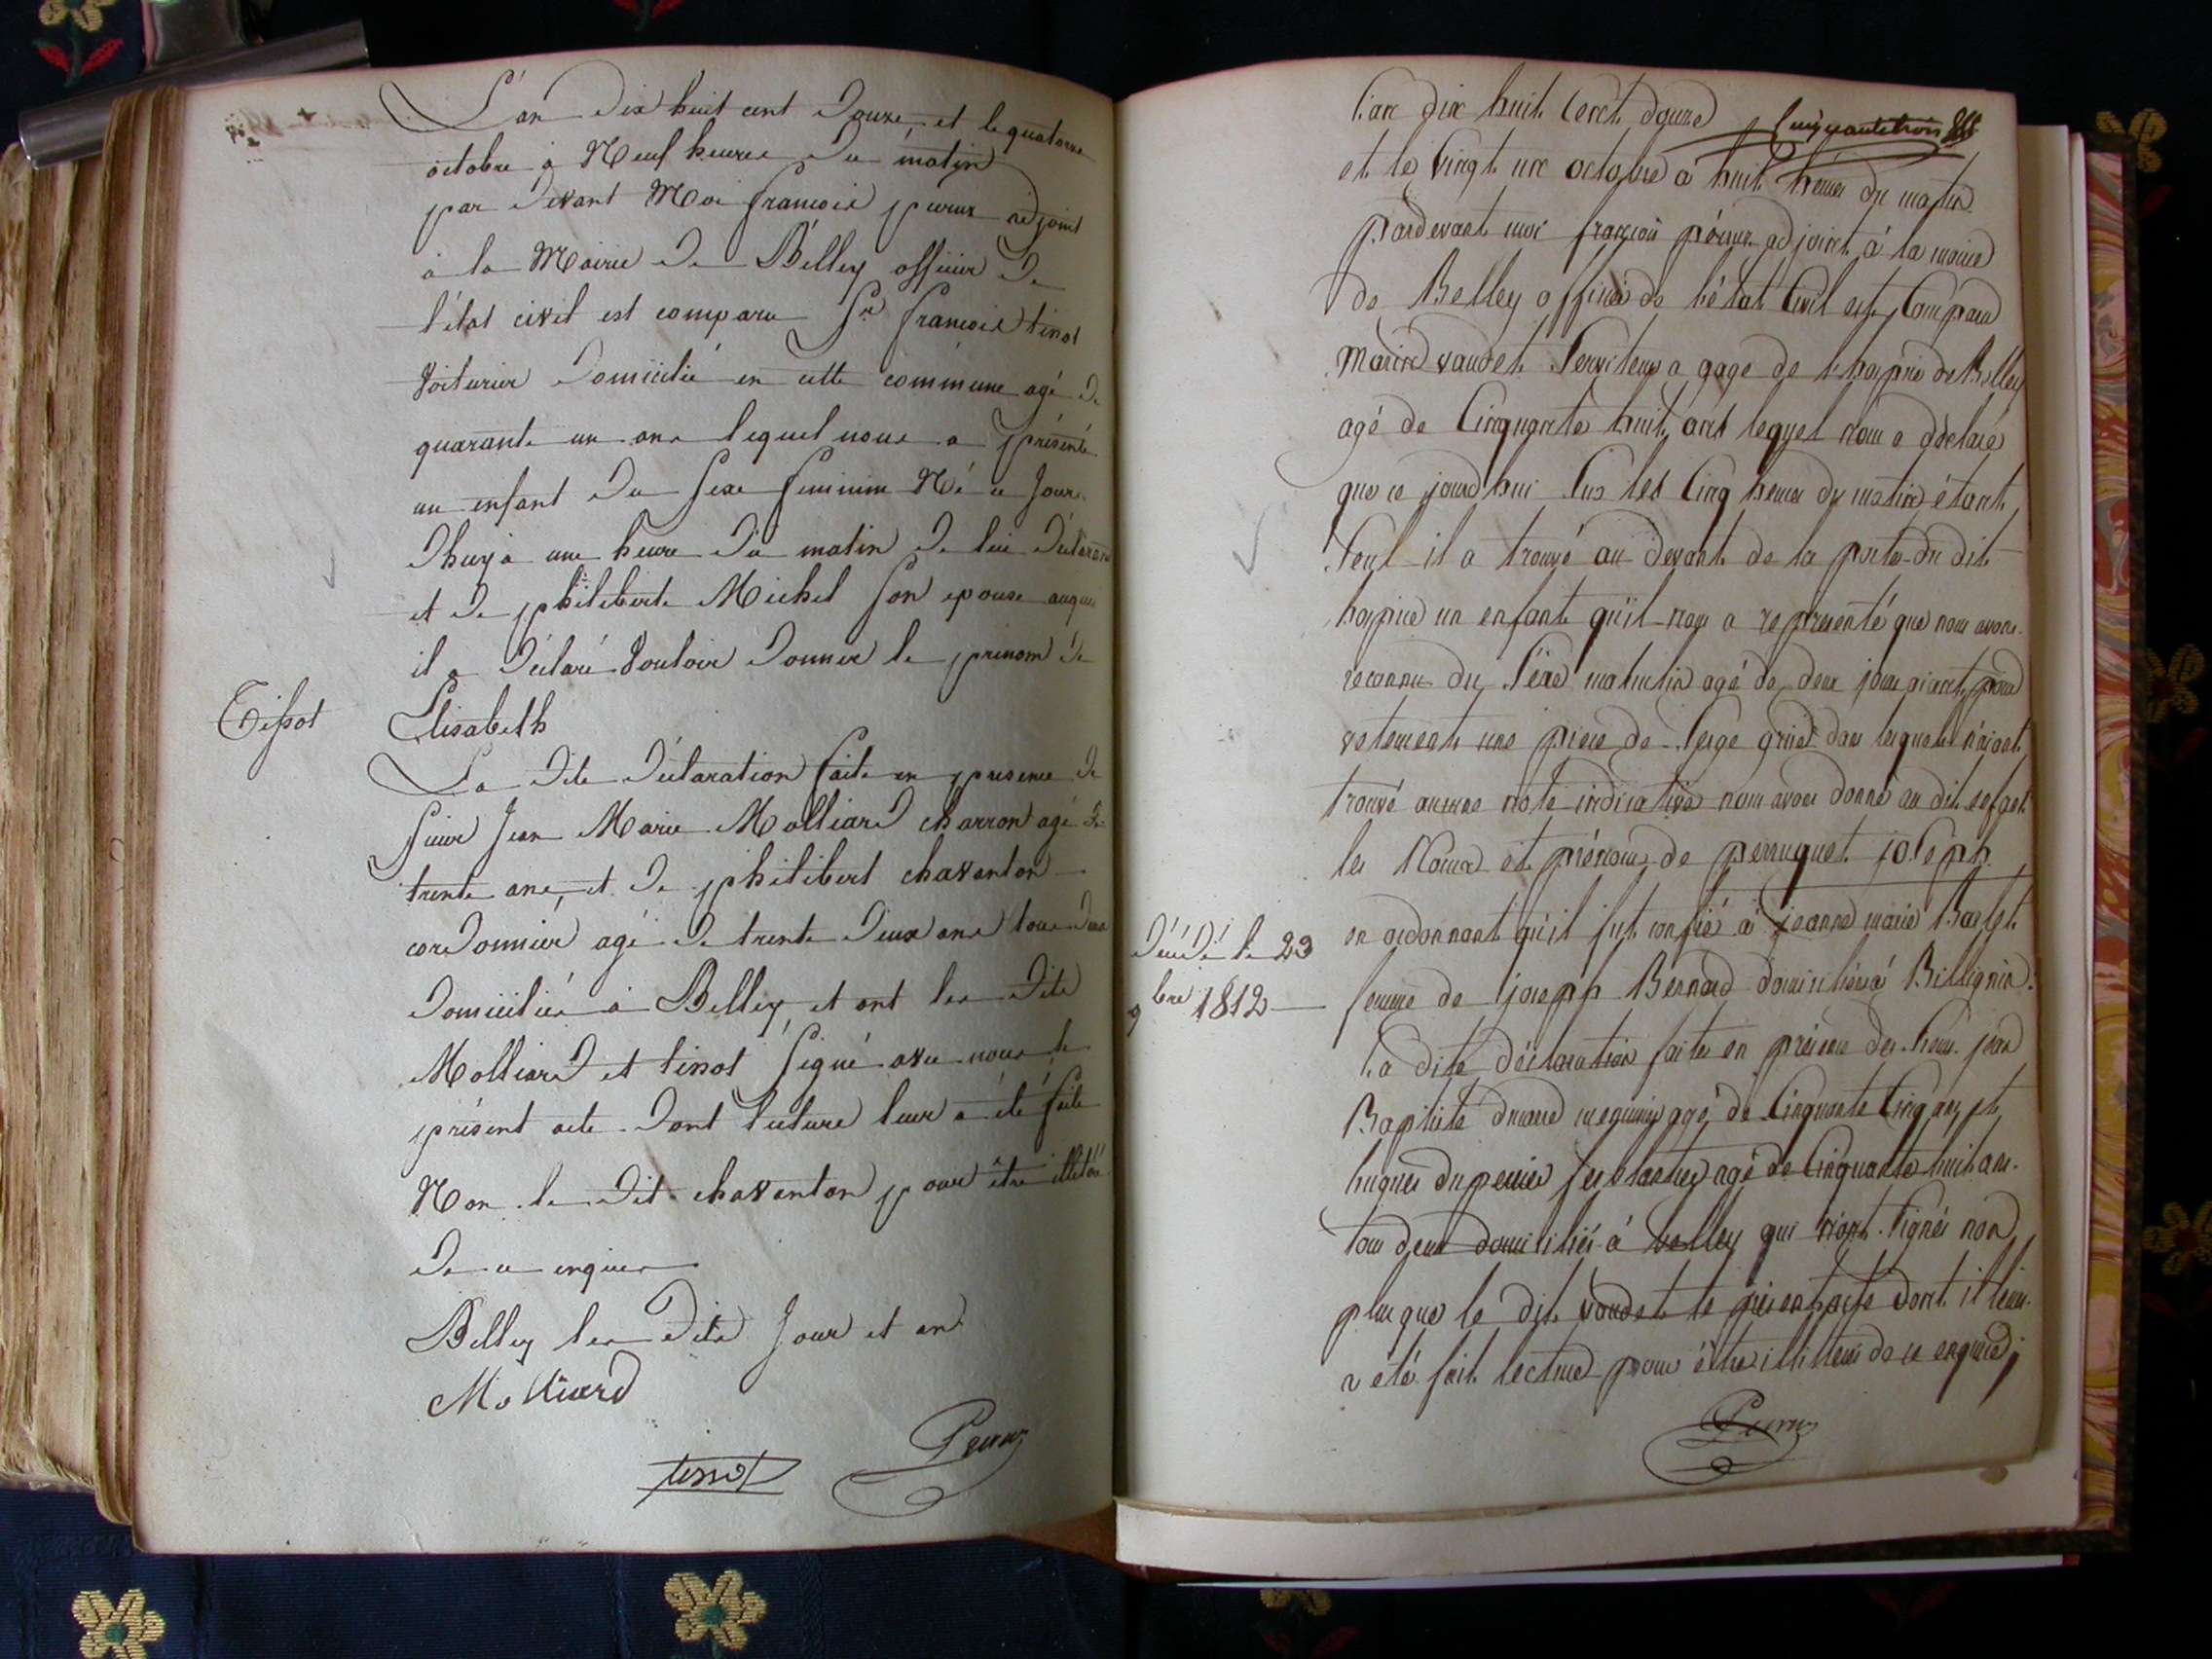 L'an Dix huit cent Douze, et le quatorze
octobre à Neuf heures Du matin
par Devant Moi françois peruux adjoint
à la Mairie De Belley officier De
l'état civil est comparu Sr françois tissot
Voiturier Domicilié en cette commune agé De
quarante un ans lequel nous a présenté
un enfant Du Sexe feminin Né ce Jour
Dhuy à une heure Du matin De lui Déclarant
et De philiberte Michel Son epouse auquel
il a Déclaré Vouloir Donner le prénom De
Tissot Elisabeth
La Dite Déclaration faite en presence De
Sieur Jean Marie Molliard charron agé De
trente ans, et De philibert chavanton
cordonnier agé De trente Deux ans tous Deux
Domiciliés à Belley et ont les Dits
Molliard et tissot Signé avec nous le
présent acte Dont lecture leur a été faite
Non le Dit chavanton pour être illitéré
De ce enquis
Belley les Dits Jour et an
Molliard
tissot
l'an dix huit cent douze Cinquante trois
et le vingt un octobre à huit heures du matin
pardevant moi françois adjoint à la mairie
de Belley officier de l'état Civil est Comparu
Marin vaudet Serviteur a gage de l'hospice de Belley
agé de Cinquante huit ans lequel nous a déclaré
que ce jourd'hui Sur les Cinq heures du matin étant
Seul il a trouvé au devant de la porte du dit
hospice un enfant qu'il nous a representé que nous avons
reconnu du Sexe masculin agé de deux jours aiant pour
vetement une piece de Serge grise dans lequel n'aiant
trouvé aucune note indicative nous avons donné au dit enfant
les Noms et prénoms de perruquet joseph
en ordonnant qu'il fut confié à jeanne marie
Décédé le 23
9bre 1812
femme de joseph Bernard domiciliée à Billignin
la dite déclaration faite en présence des Sieurs jean
Baptiste agé de Cinquante Cinq ans, et
hugues dupenier agé de Cinquante huit ans
tous deux domiciliés à belley qui n'ont Signés non
plus que le dit vaudet le présent acte dont il leur
a été fait lecture pour être illiterés de ce enquis